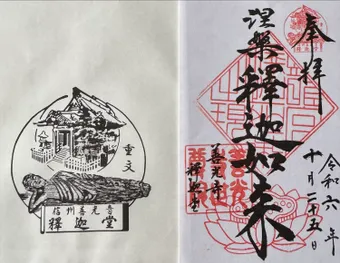 奉拝
涅槃釋迦如来
令和六年
十月二十五日
善光寺
釋迦堂
重文
信州善光寺
釋迦堂